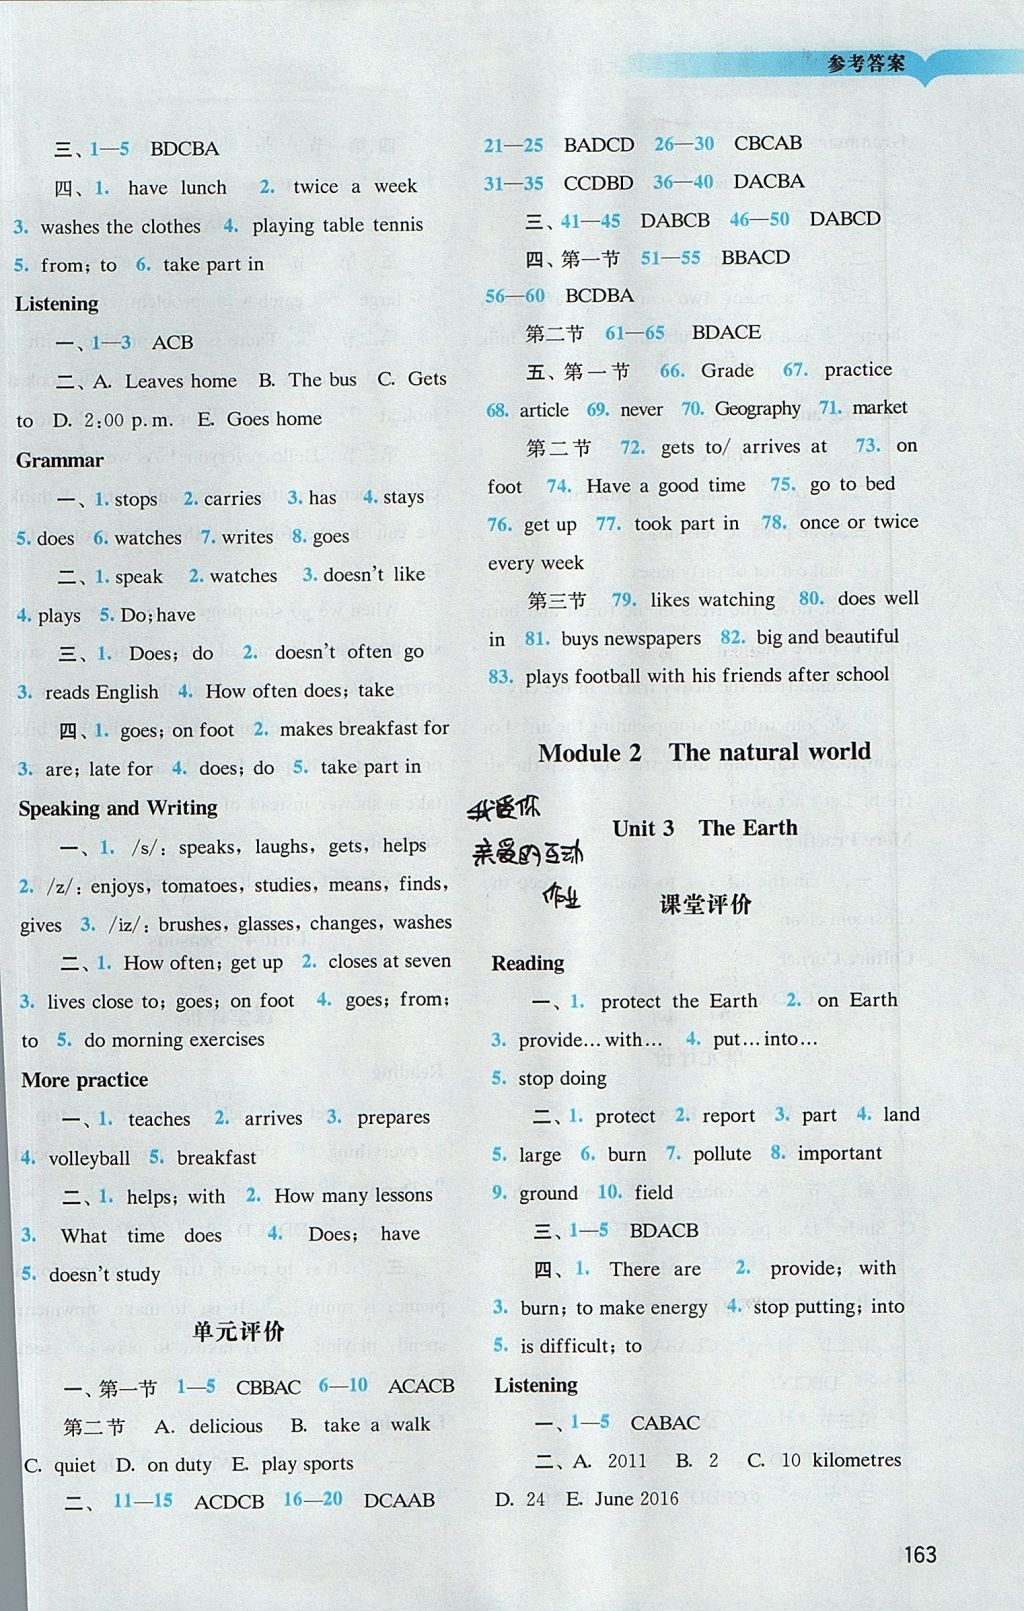 参考答案
三、1—5 BDCBA
四、1. have lunch 2. twice a week
3. washes the clothes 4. playing table tennis
5. from; to 6. take part in
Listening
一、1—3 ACB
二、A. Leaves home B. The bus C. Gets
to D. 2:00 p.m. E. Goes home
Grammar
一、1. stops 2. carries 3. has 4. stays
5. does 6. watches 7. writes 8. goes
二、1. speak 2. watches 3. doesn't like
4. plays 5. Do; have
三、1. Does; do 2. doesn't often go
3. reads English 4. How often does; take
四、1. goes; on foot 2. makes breakfast for
3. are; late for 4. does; do 5. take part in
Speaking and Writing
一、1. /s/: speaks, laughs, gets, helps
2. /z/: enjoys, tomatoes, studies, means, finds,
gives 3. /iz/: brushes, glasses, changes, washes
二、1. How often; get up 2. closes at seven
3. lives close to; goes; on foot 4. goes; from;
to 5. do morning exercises
More practice
一、1. teaches 2. arrives 3. prepares
4. volleyball 5. breakfast
二、1. helps; with 2. How many lessons
3. What time does 4. Does; have
5. doesn't study
单元评价
一、第一节 1—5 CBBAC 6—10 ACACB
第二节 A. delicious B. take a walk
C. quiet D. on duty E. play sports
二、 11—15 ACDCB 16—20 DCAAB
21—25 BADCD 26—30 CBCAB
31—35 CCDBD 36—40 DACBA
三、41—45 DABCB 46—50 DABCD
四、第一节 51—55 BBACD
56—60 BCDBA
第二节 61—65 BDACE
五、第一节 66. Grade 67. practice
68. article 69. never 70. Geography 71. market
第二节 72. gets to/ arrives at 73. on
foot 74. Have a good time 75. go to bed
76. get up 77. took part in 78. once or twice
every week
第三节 79. likes watching 80. does well
in 81. buys newspapers 82. big and beautiful
83. plays football with his friends after school
Module 2 The natural world
我爱你
Unit 3 The Earth
亲爱的互动
作业
课堂评价
Reading
一、1. protect the Earth 2. on Earth
3. provide...with... 4. put...into...
5. stop doing
二、1. protect 2. report 3. part 4. land
5. large 6. burn 7. pollute 8. important
9. ground 10. field
三、1—5 BDACB
四、1. There are 2. provide; with
3. burn; to make energy 4. stop putting; into
5. is difficult; to
Listening
一、1—5 CABAC
二、A. 2011 B. 2 C. 10 kilometres
D. 24 E. June 2016
163